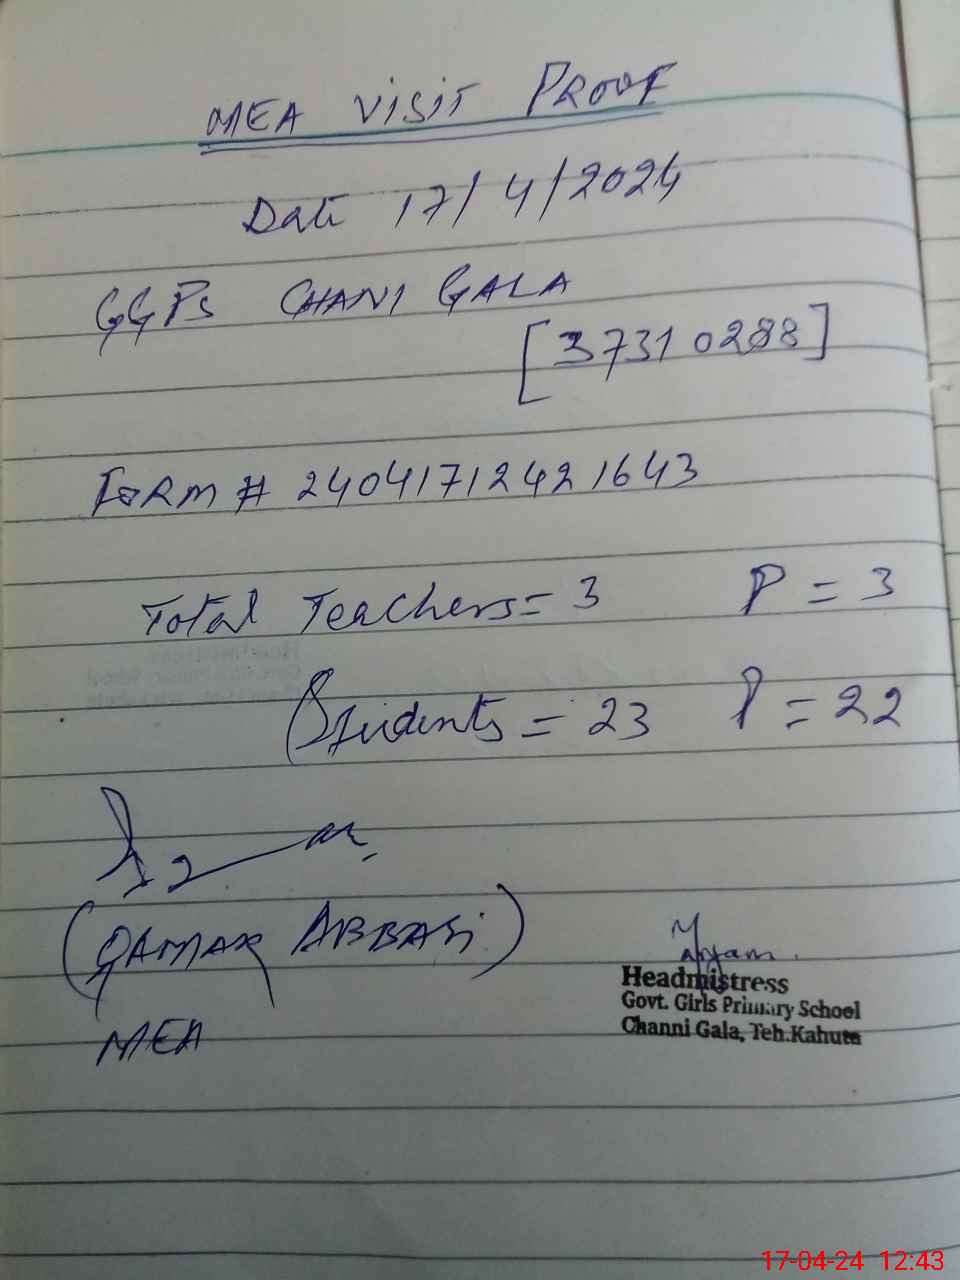 MEA VISIT PROOF
Date 17/4/2024
GGPS CHANI GALA
[37310288]
FORM # 24041712421643
Total Teachers = 3 P = 3
Students = 23 P = 22
(QAMAR ABBASI)
MEA
Maryam.
Headmistress
Govt. Girls Primary School
Channi Gala, Teh.Kahuta
17-04-24 12:43